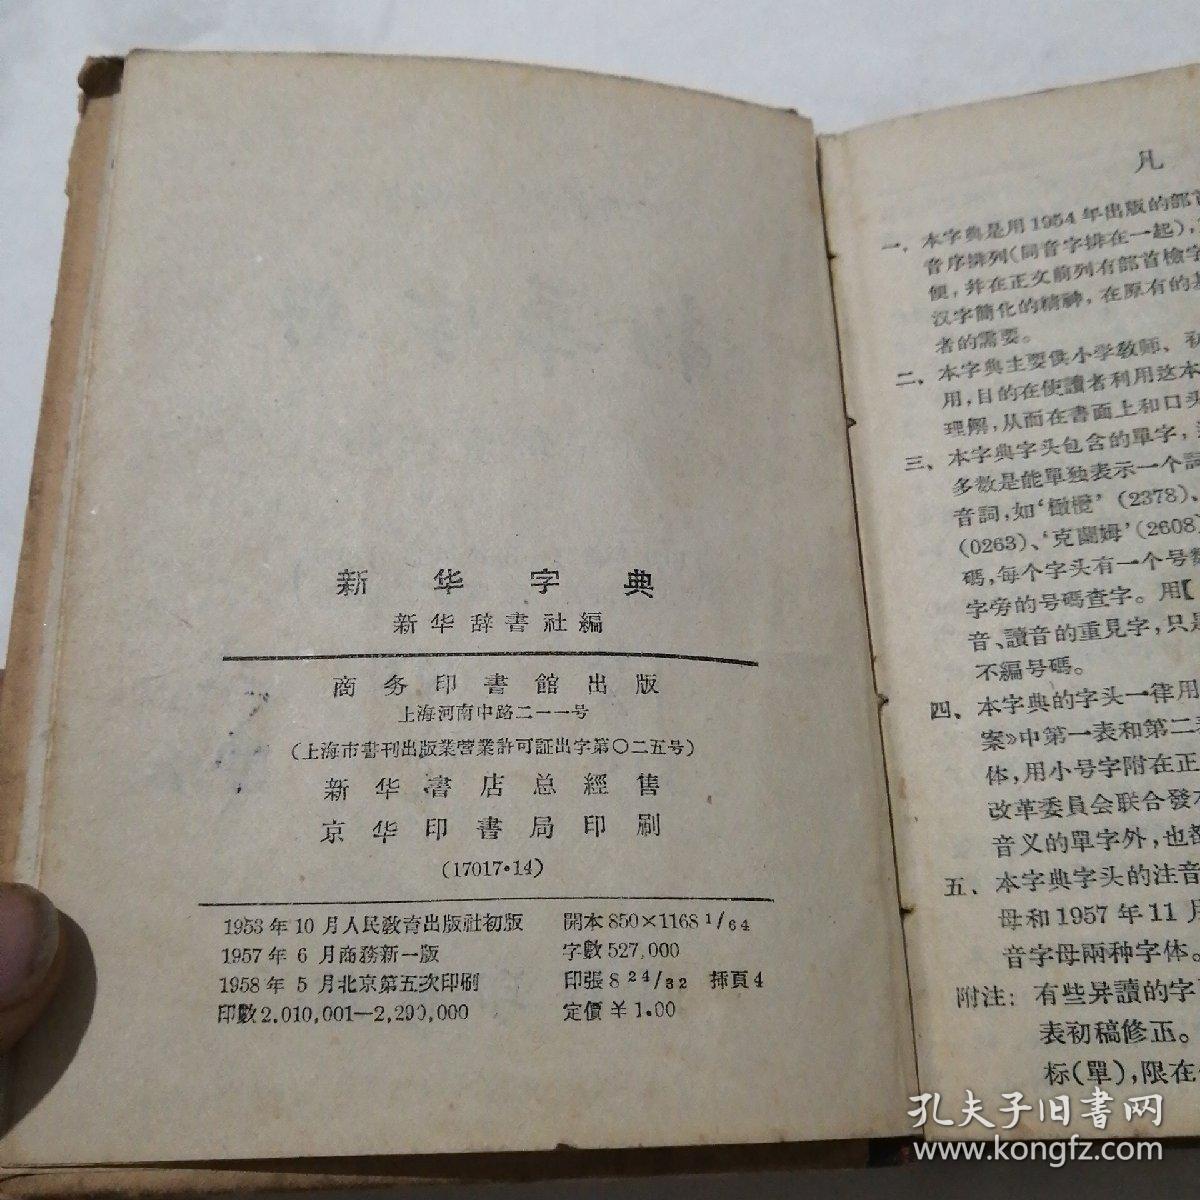 新华字典
新华辞書社編
商务印書館出版
上海河南中路二一一号
(上海市書刊出版業營業許可証出字第〇二五号)
新华書店总經售
京华印書局印刷
(17017·14)
1953年10月人民敎育出版社初版
1957年6月商務新一版
1958年5月北京第五次印刷
印數2,010,001—2,290,000
開本850×1168 1/64
字數527,000
印張8 24/32 插頁4
定價￥1.00
凡
一、本字典是用1954年出版的部首
音序排列(同音字排在一起),
便,幷在正文前列有部首檢字
汉字簡化的精神,在原有的基
者的需要。
二、本字典主要供小学敎师、初
用,目的在使讀者利用这本
理解,从而在書面上和口头
三、本字典字头包含的單字,
多数是能單独表示一个詞
音詞,如‘橄欖’(2378)、
(0263)、‘克蘭姆’(2608)
碼,每个字头有一个号数
字旁的号碼查字。用【
音、讀音的重見字,只是
不編号碼。
四、本字典的字头一律用
案》中第一表和第二表
体,用小号字附在正
改革委員会联合發
音义的單字外,也都
五、本字典字头的注音
母和1957年11月
音字母兩种字体。
附注:有些异讀的字
表初稿修正。
标(單),限在
孔夫子旧书网
www.kongfz.com